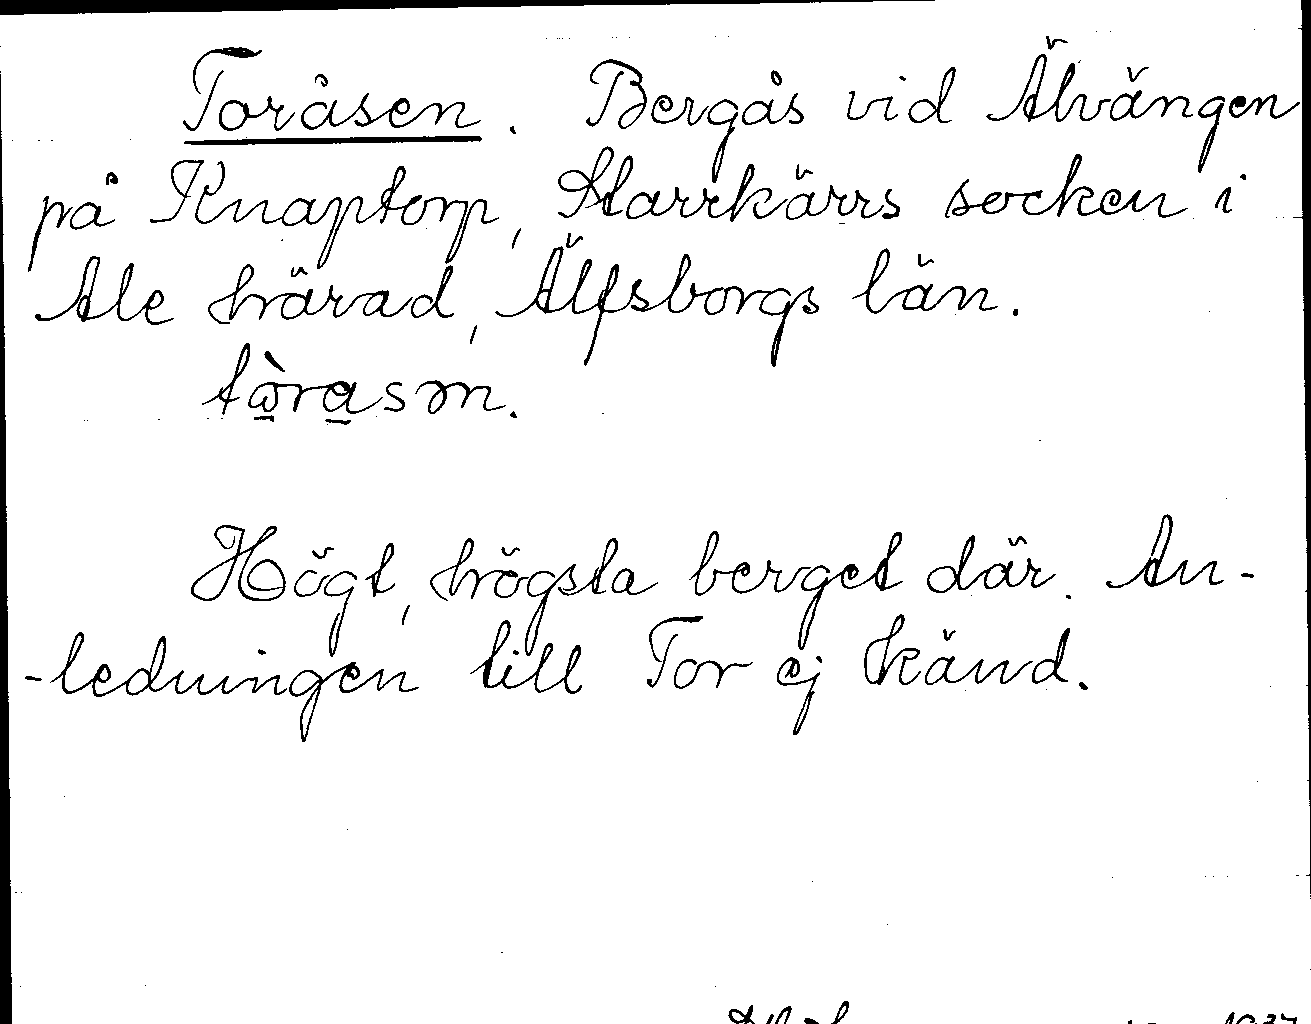 Toråsen. Bergås vid Älvängen
på Knaptorp, Starrkärrs socken i
Ale härad, Älfsborgs län.
tὼ̱ra̱sɘn.
Högt, högsta berget där. An-
-ledningen till Tor ej känd.